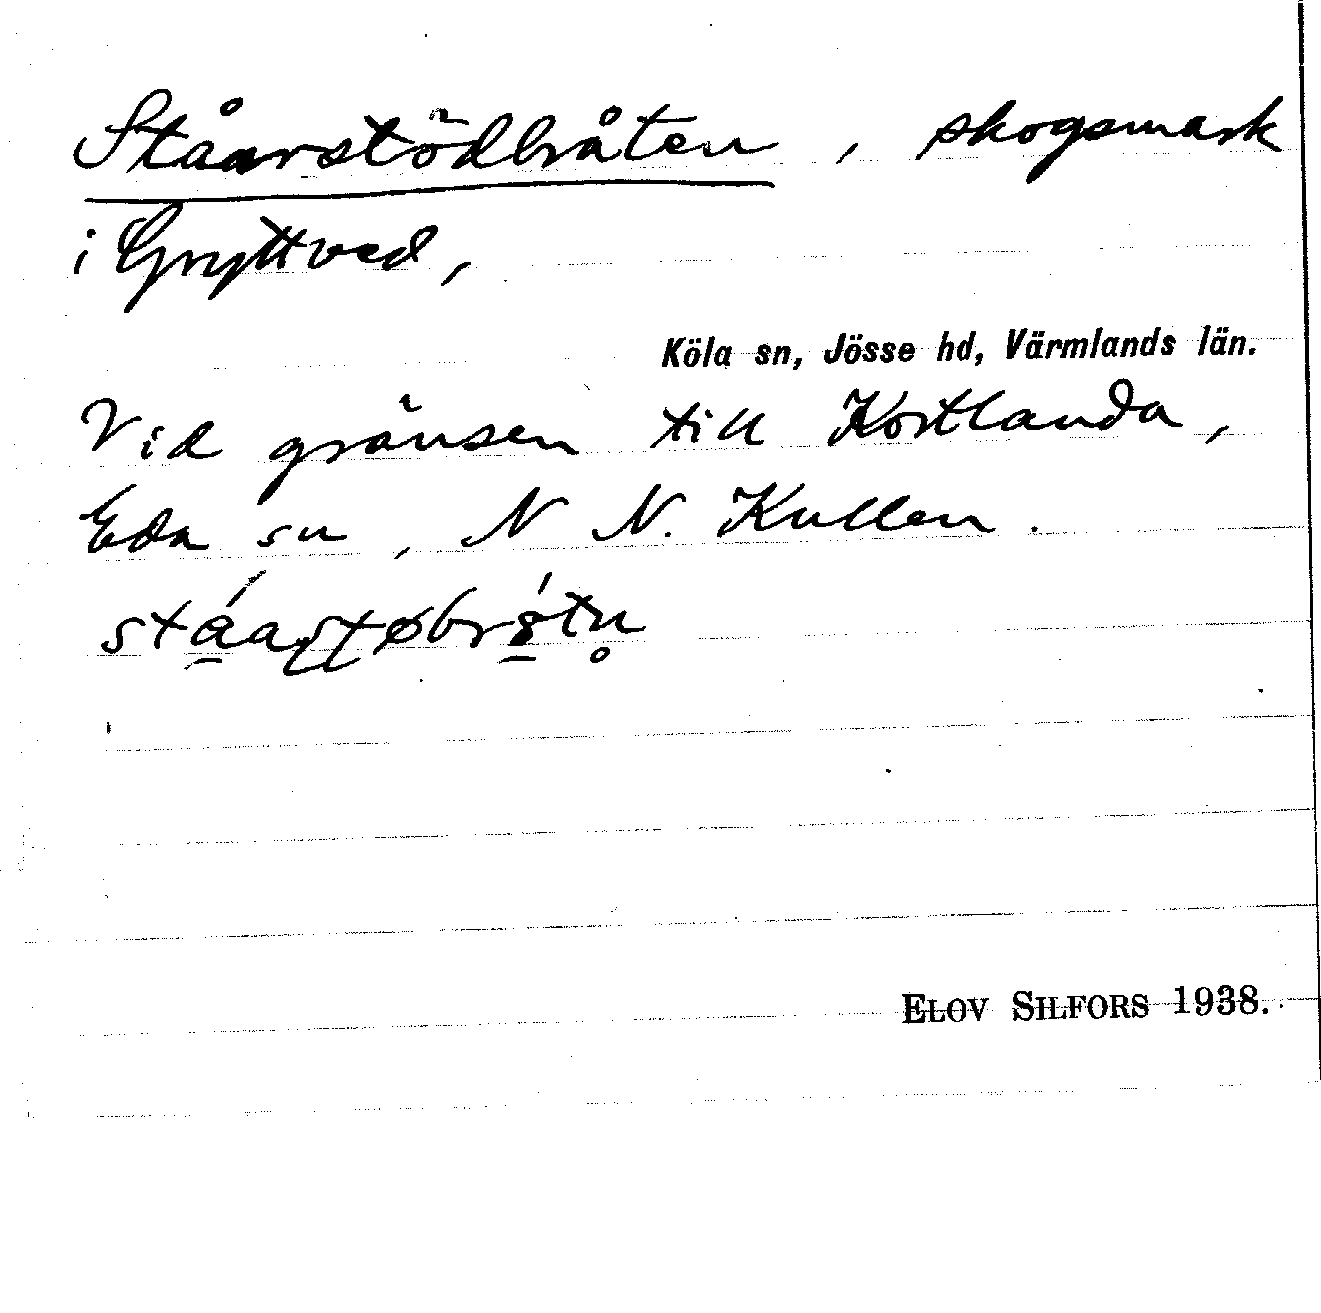 Ståarstödbråten, skogsmark
i Gryttved,
Köla sn, Jösse hd, Värmlands län.
Vid gränsen till Kostlanda,
Eda sn, N N. Kullen.
ELOV SILFORS 1938.